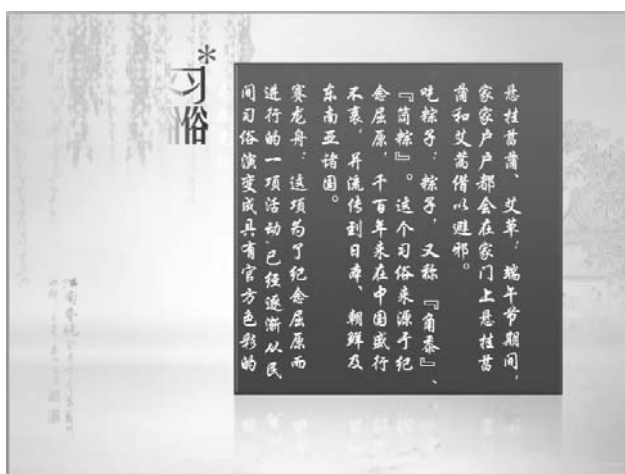 *
习俗
悬挂菖蒲、艾草:端午节期间,
家家户户都会在家门上悬挂菖
蒲和艾蒿借以避邪。
吃粽子:粽子,又称『角黍』、
『筒粽』。这个习俗来源于纪
念屈原,千百年来在中国盛行
不衰,并流传到日本、朝鲜及
东南亚诸国。
赛龙舟:这项为了纪念屈原而
进行的一项活动已经逐渐从民
间习俗演变成具有官方色彩的